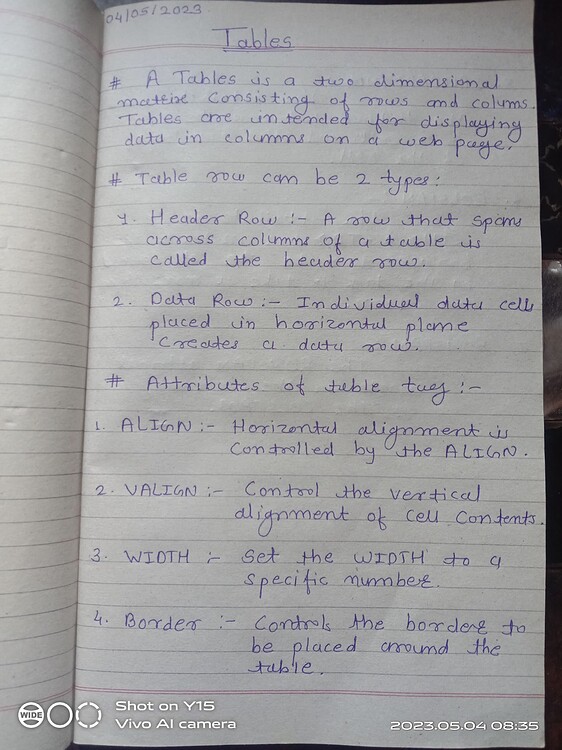 04/05/2023
Tables
# A Tables is a two dimensional
matrix consisting of rows and colums.
Tables are intended for displaying
data in columns on a web page.
# Table row can be 2 types:
1. Header Row :- A row that spans
across columns of a table is
called the header row.
2. Data Row :- Individual data cells
placed in horizontal plane
Creates a data row.
# Attributes of table tag :-
1. ALIGN :- Horizontal alignment is
Controlled by the ALIGN.
2. VALIGN :- Control the vertical
alignment of cell contents.
3. WIDTH :- Set the WIDTH to a
specific number.
4. Border :- Controls the border to
be placed around the
table.
WIDE
Shot on Y15
Vivo AI camera
2023.05.04 08:35